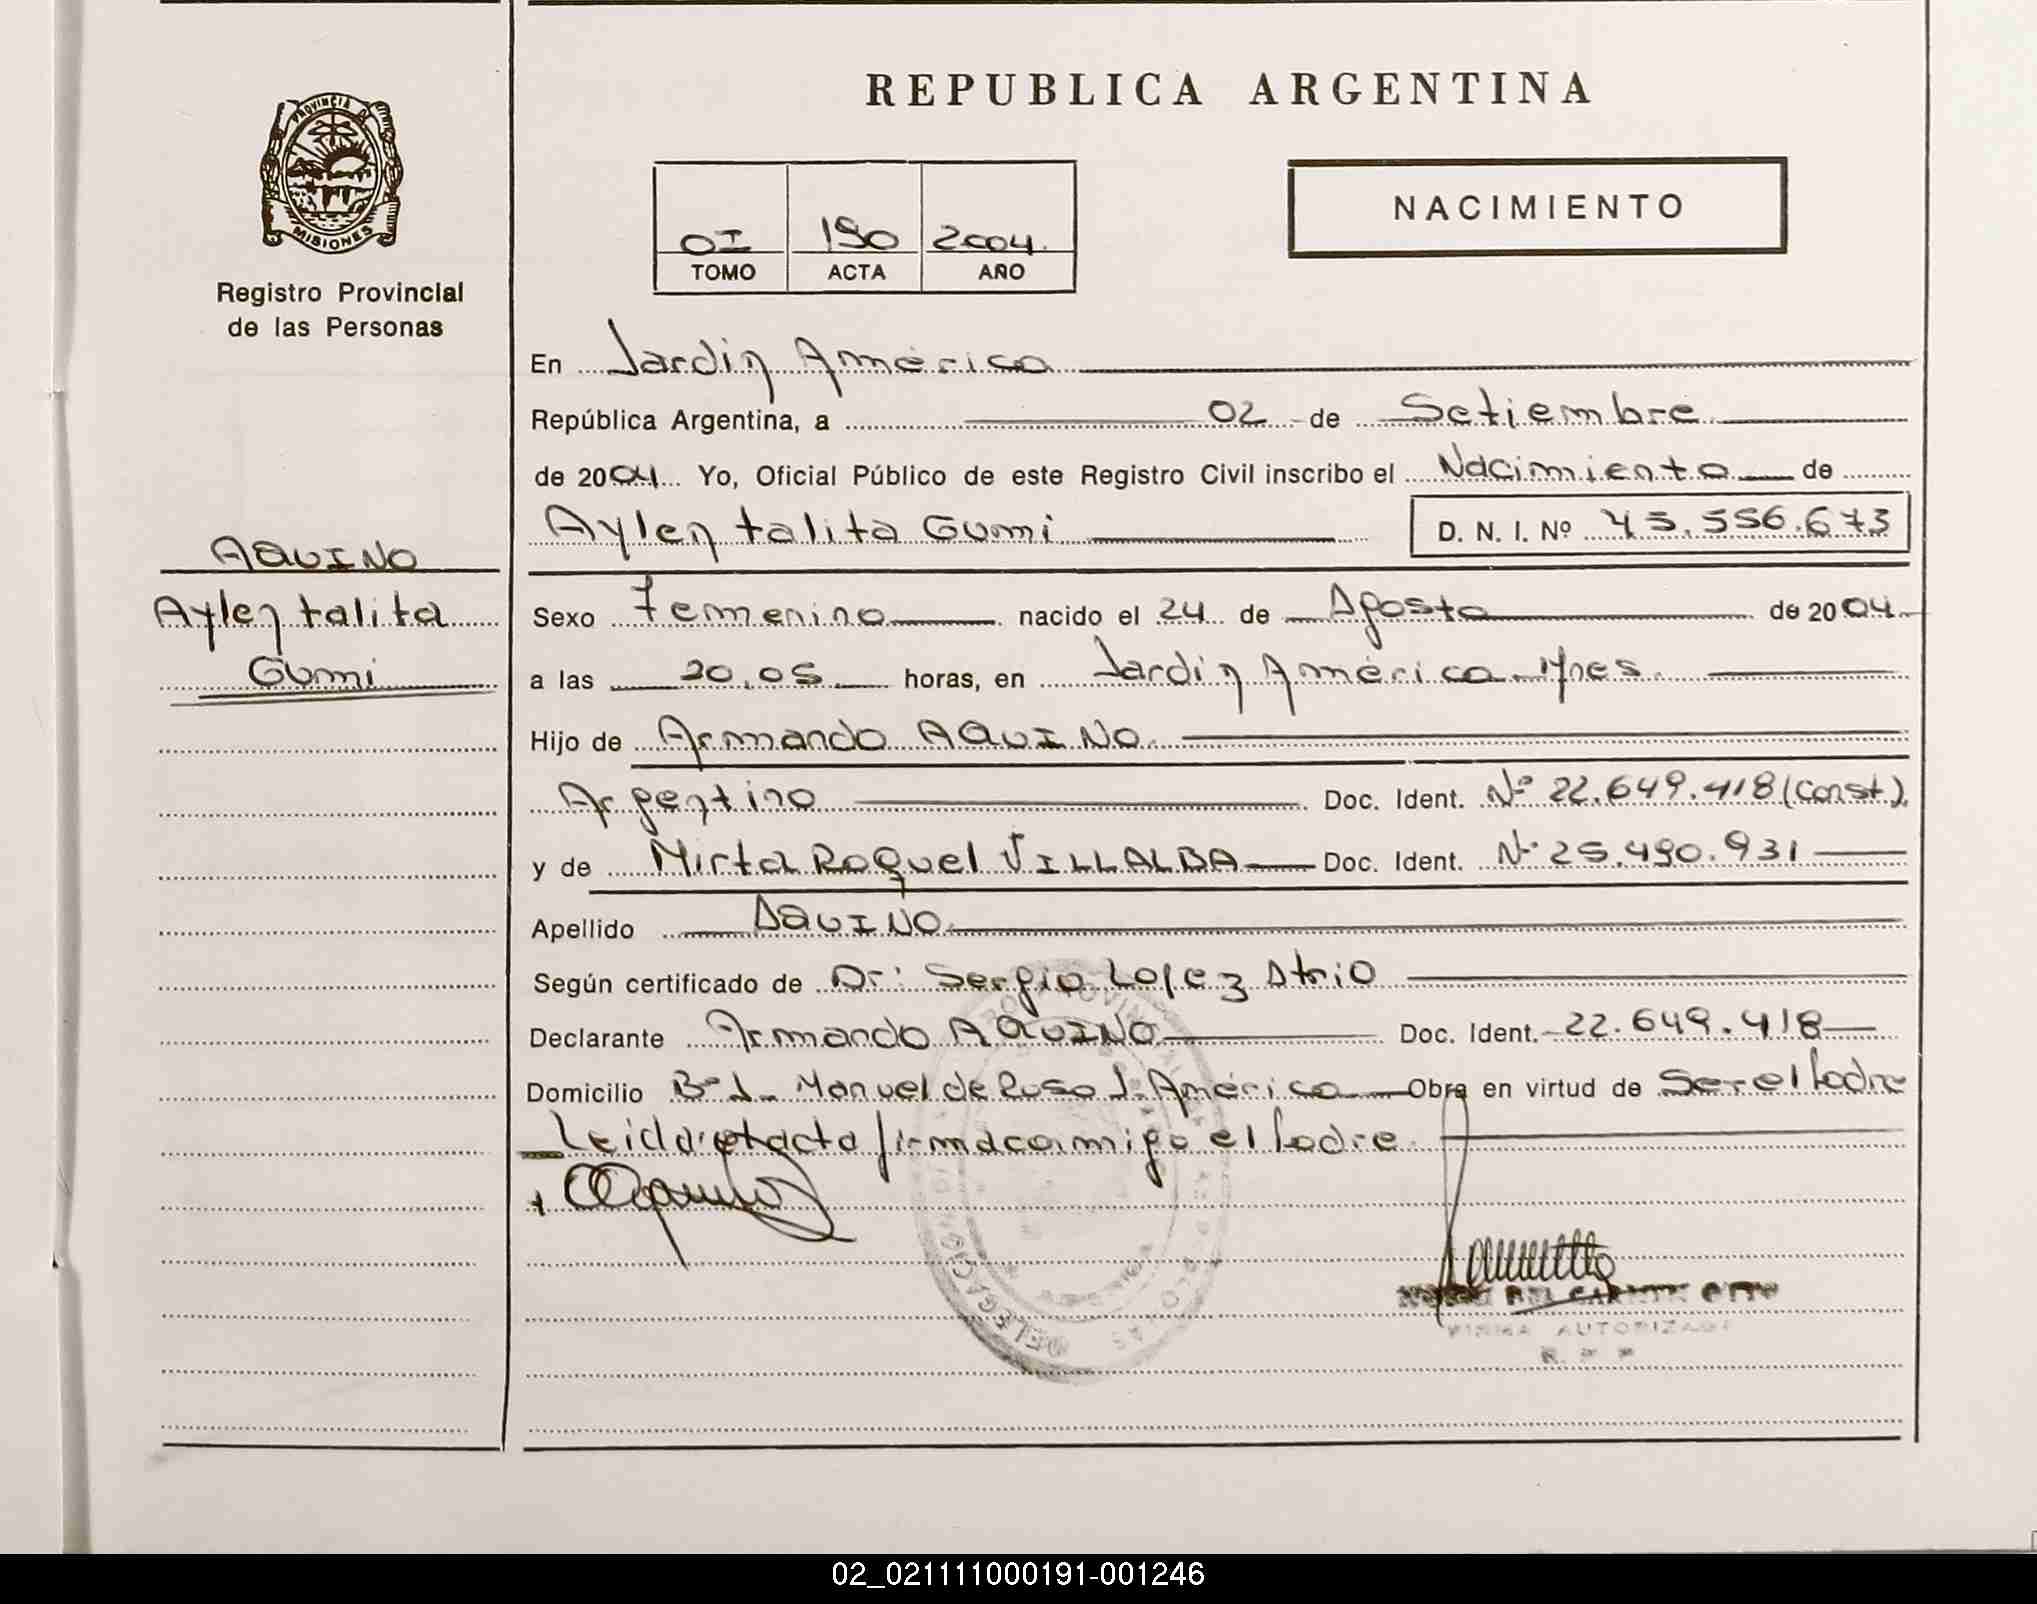 REPUBLICA ARGENTINA
PROVINCIA DE
MISIONES
Registro Provincial
de las Personas
OI 190 2004.
TOMO ACTA AÑO
NACIMIENTO
En Jardin América
República Argentina, a 02 de Setiembre
de 2004 Yo, Oficial Público de este Registro Civil inscribo el Nacimiento de
Aylen talita Gumi D. N. I. Nº 45.556.673
AQUINO
Aylen talita
Gumi
Sexo Femenino nacido el 24 de Agosto de 2004
a las 20,05 horas, en Jardin América Mnes.
Hijo de Armando AQUINO
Argentino Doc. Ident. Nº 22.649.418 (Const.)
y de Mirta Raquel VILLALBA Doc. Ident. Nº 25.490.931
Apellido AQUINO
Según certificado de Dr: Sergio Lopez Atrio
Declarante Armando AQUINO Doc. Ident. 22.649.418
Domicilio Bº J. Manuel de Rosa J. América Obra en virtud de Ser el Padre
Leida el acta firma conmigo el Padre
DEL CARMEN
FIRMA AUTORIZADA
R. P. P.
DELEGACION
02_021111000191-001246